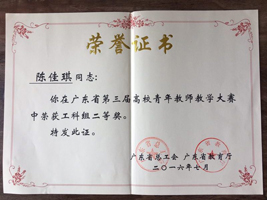 荣誉证书
陈佳琪同志:
你在广东省第三届高校青年教师教学大赛
中荣获工科组二等奖。
特发此证。
广东省总工会 广东省教育厅
二〇一六年七月